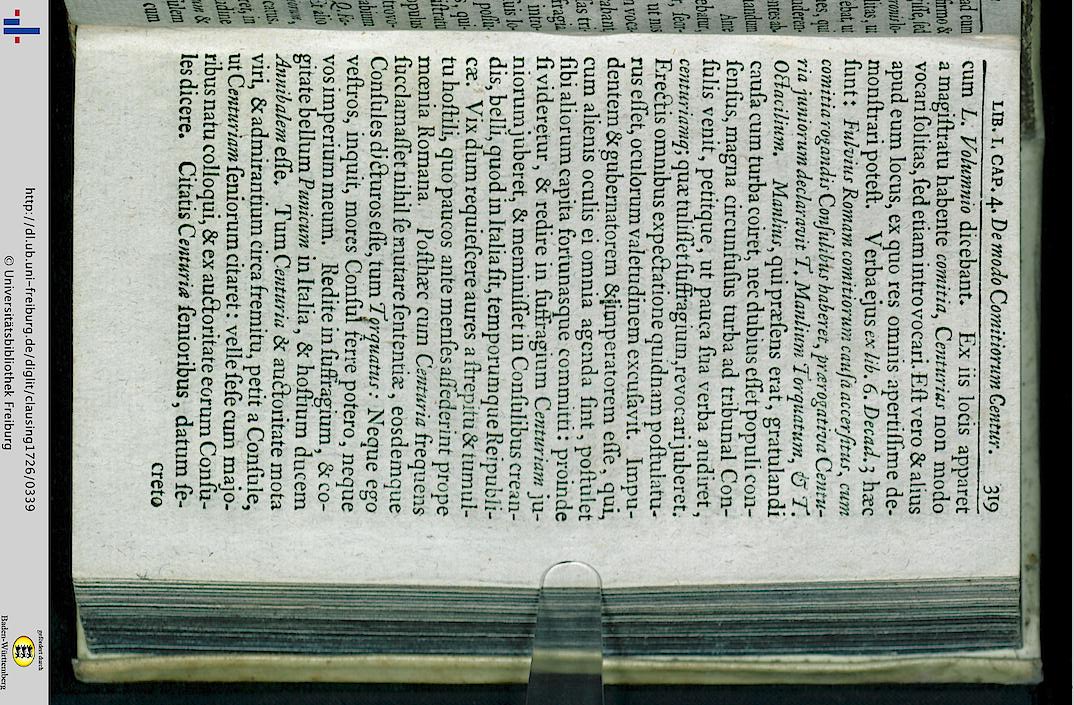 LIB. I. CAP. 4. De modo Comitiorum Centur. 319
cum L. Volumnio dicebant. Ex iis locis apparet
a magiſtratu habente comitia, Centurias non modo
vocari ſolitas, ſed etiam introvocari. Eſt vero & alius
apud eum locus, ex quo res omnis apertiſſime de-
monſtrari poteſt. Verba ejus ex lib. 6. Decad. 3 hæc
ſunt: Fulvius Romam comitiorum cauſa accerſitus, cum
comitia rogandis Conſulibus haberet, prærogativa Centu-
ria juniorum declaravit T. Manlium Torquatum, & T.
Octacilium. Manlius, qui præſens erat, gratulandi
cauſa cum turba coiret, nec dubius eſſet populi con-
ſenſus, magna circunfuſus turba ad tribunal Con-
ſulis venit, petitque, ut pauca ſua verba audiret,
centuriamq; quæ tuliſſet ſuffragium, revocari juberet.
Erectis omnibus expectatione quidnam poſtulatu-
rus eſſet, oculorum valetudinem excuſavit. Impu-
dentem & gubernatorem & imperatorem eſſe, qui,
cum alienis oculis ei omnia agenda ſint, poſtulet
ſibi aliorum capita fortunasque committi: proinde
ſi videretur, & redire in ſuffragium Centuriam ju-
niorum juberet, & meminiſſet in Conſulibus crean-
dis, belli, quod in Italia ſit, temporumque Reipubli-
cæ. Vix dum requieſcere aures a ſtrepitu & tumul-
tu hoſtili, quo paucos ante menſes aſſederint prope
mœnia Romana. Poſthæc cum Centuria frequens
ſucclamaſſet nihil ſe mutare ſententiæ, eosdemque
Conſules dicturos eſſe, tum Torquatus: Neque ego
veſtros, inquit, mores Conſul ferre potero, neque
vos imperium meum. Redite in ſuffragium, & co-
gitate bellum Punicum in Italia, & hoſtium ducem
Annibalem eſſe. Tum Centuria & auctoritate mota
viri, & admirantium circa fremitu, petiit a Conſule,
ut Centuriam ſeniorum citaret: velle ſeſe cum majo-
ribus natu colloqui, & ex auctoritate eorum Conſu-
les dicere. Citatis Centuria ſenioribus, datum ſe-
creto
http://dl.ub.uni-freiburg.de/diglit/clausing1726/0339
© Universitätsbibliothek Freiburg
gefördert durch
Baden-Württemberg